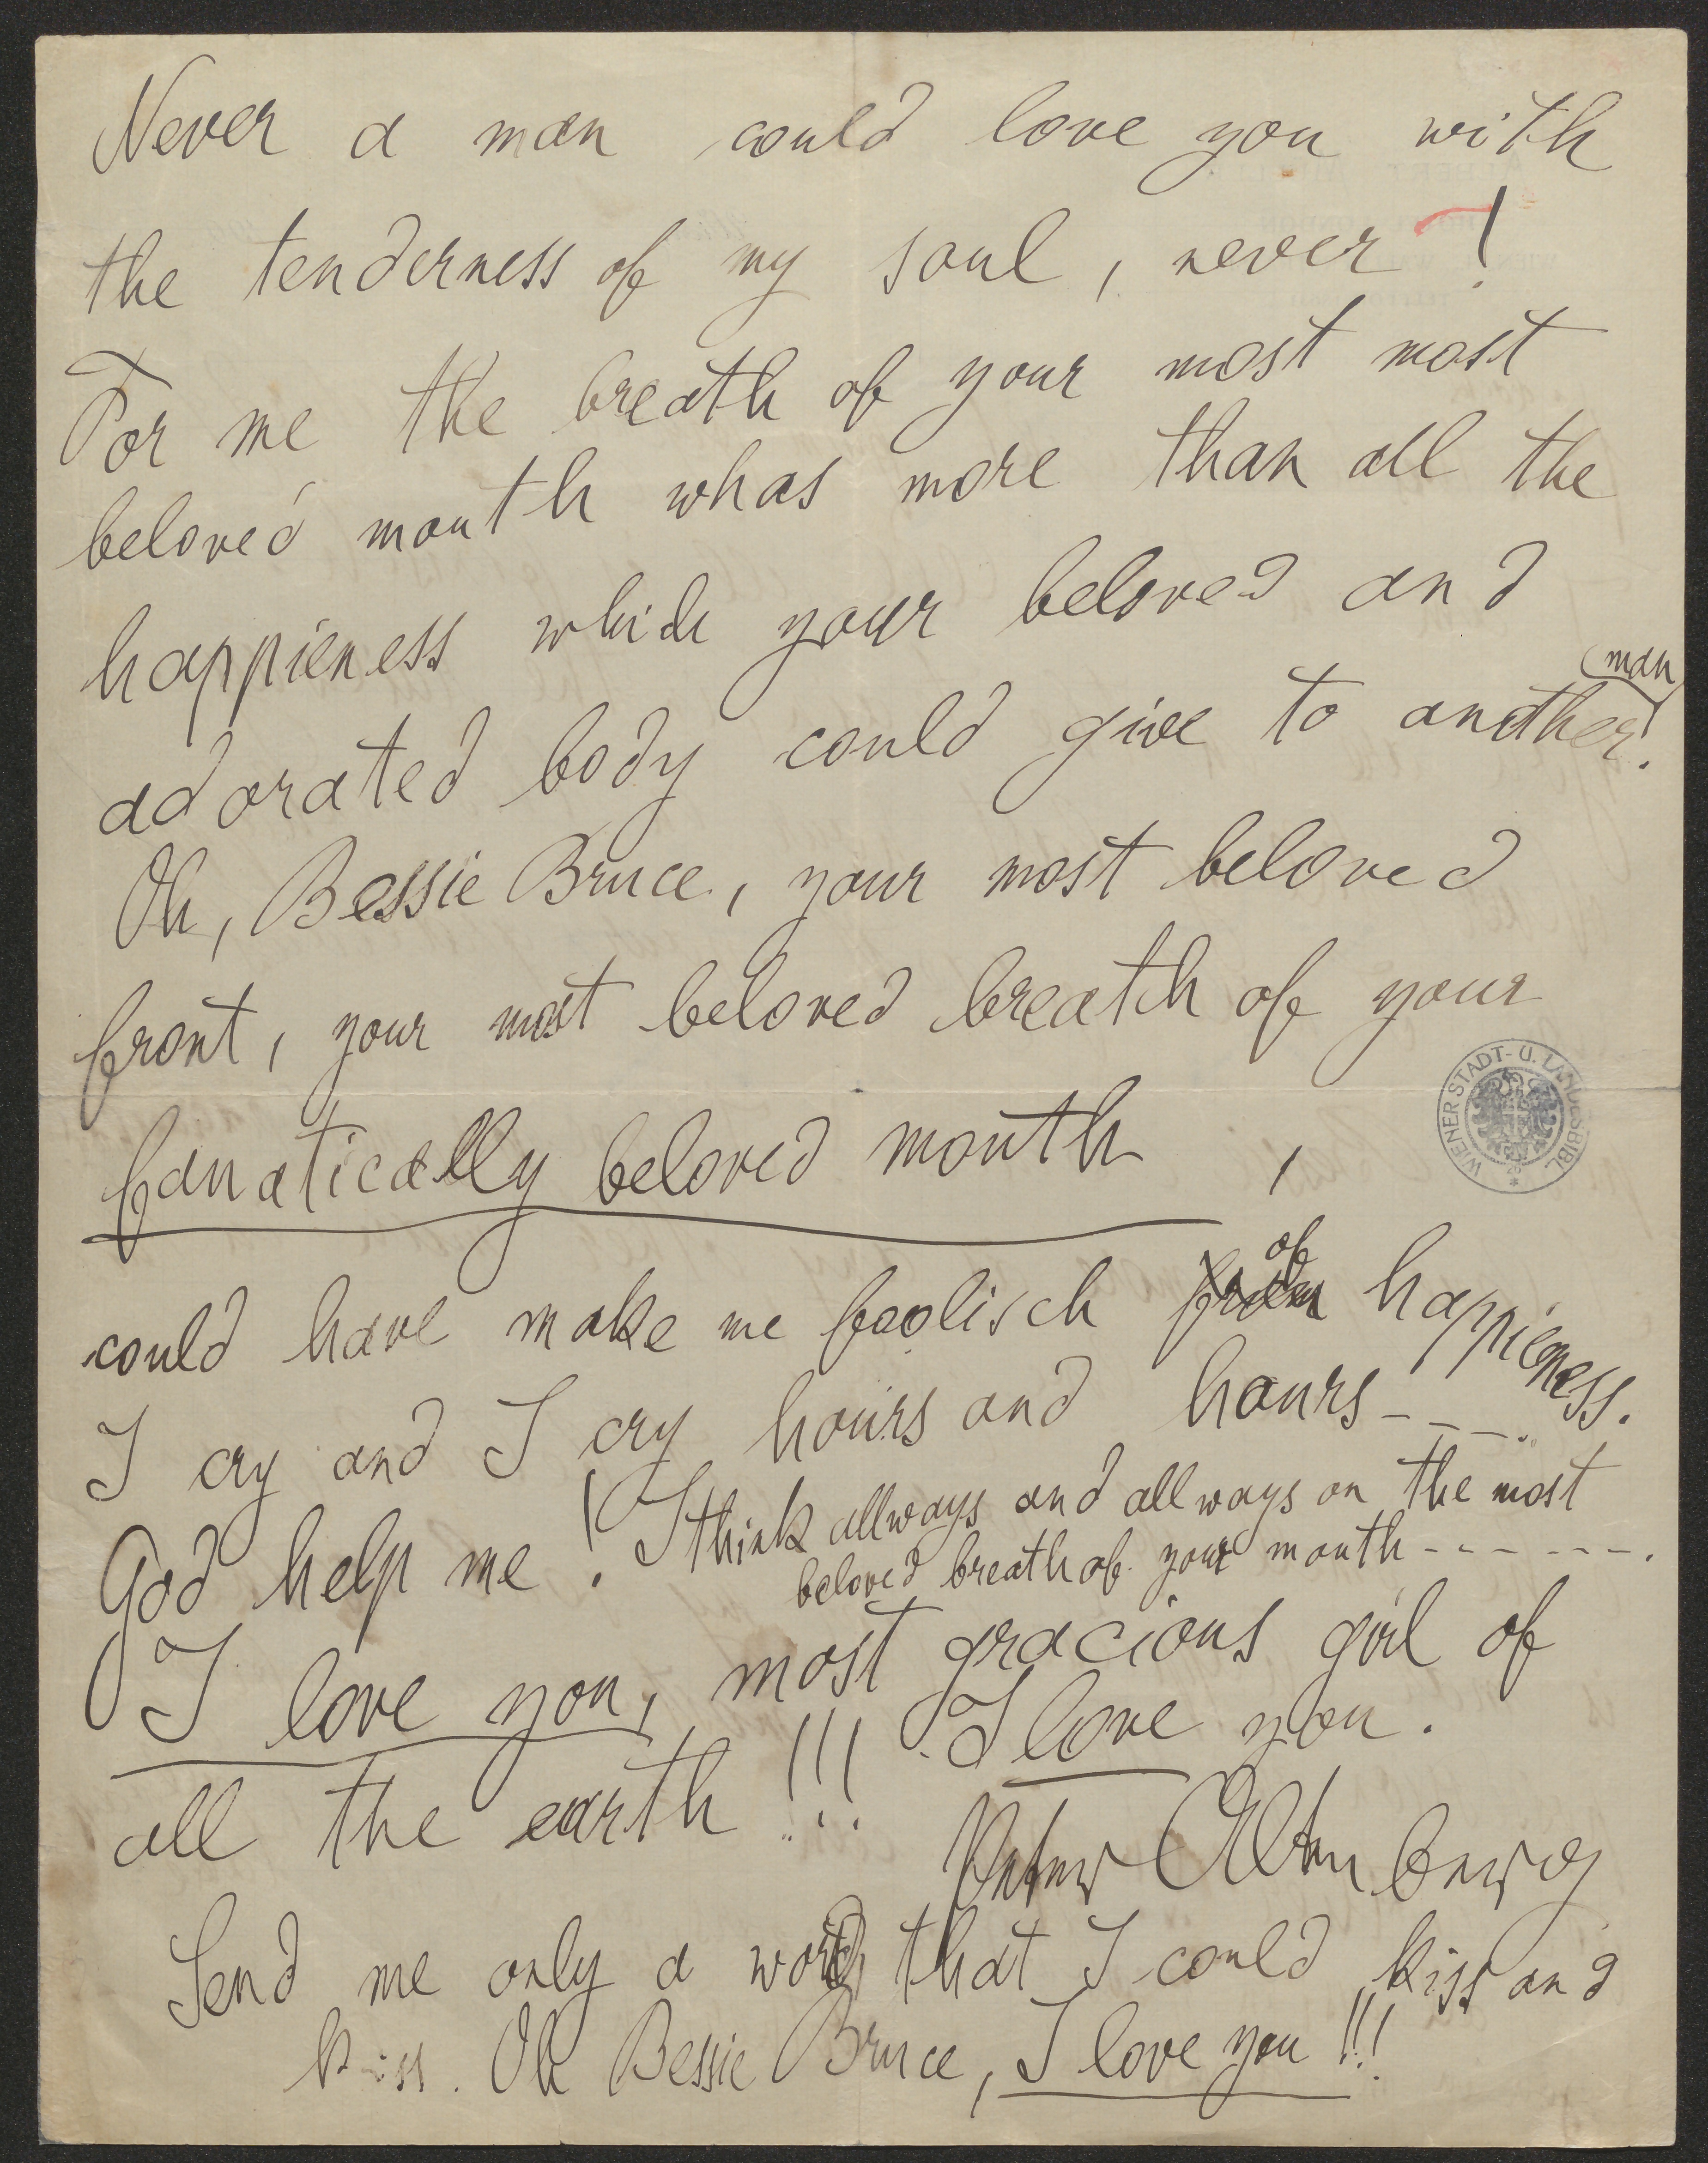 Never a man could love you with
the tenderness of my soul, never!
For me the breath of your most most
beloved mouth whas more than all the
happieness which your beloved and
man
adorated body could give to another!
Oh, Bessie Bruce, your most beloved
front, your most beloved breath of your
fanatically beloved mouth,
of
could have make me foolisch from happieness.
I cry and I cry hours and hours - - - -.
God help me! I think allways and allways on the most
beloved breath of your mouth - - - - - -.
I love you, most gracious girl of
all the earth!!! I love you.
Peter Altenberg
Send me only a word, that I could kiss and
kiss. Oh Bessie Bruce, I love you!!!
WIENER STADT- U. LANDESBIBL.